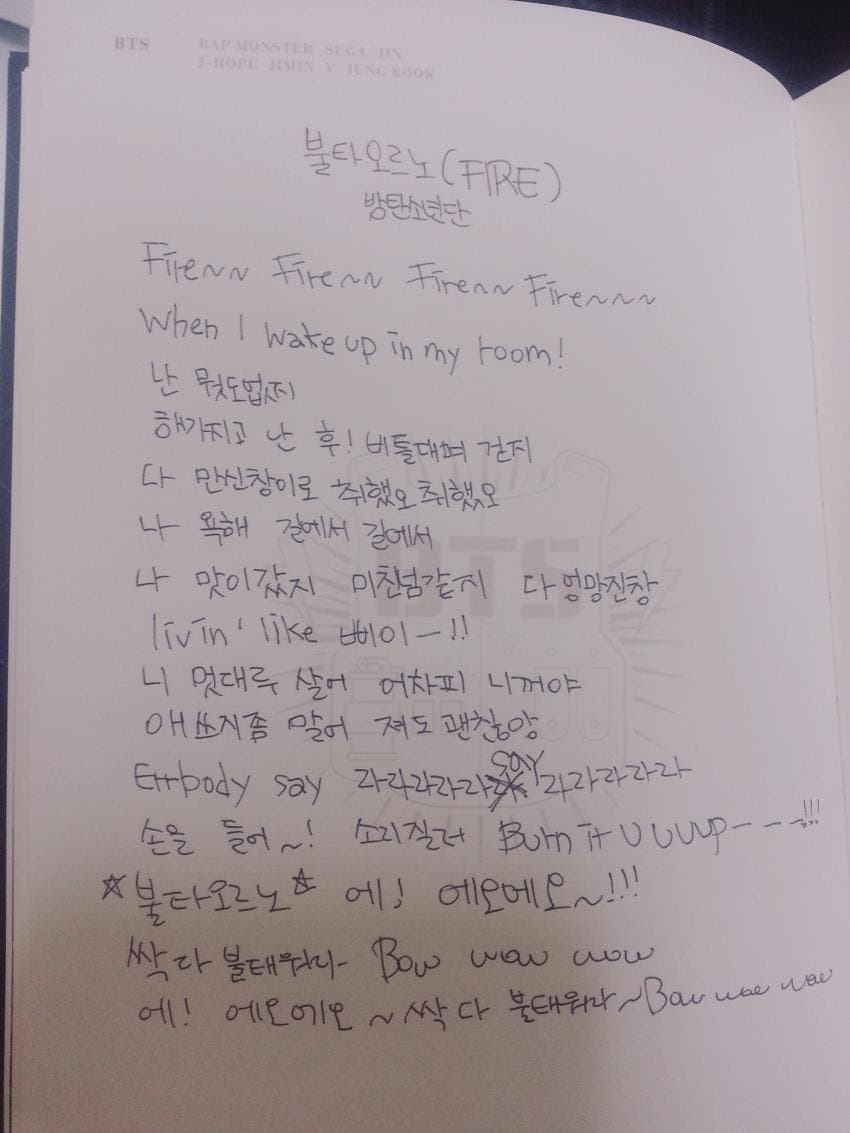 BTS RAP MONSTER SUGA JIN
J-HOPE JIMIN V JUNG KOOK
불타오르노(FIRE)
방탄소년단
Fire~~ Fire~~ Fire~~ Fire~~~
When I wake up in my room!
난 뭣도없지
해가지고 난 후! 비틀대며 걷지
다 만신창이로 취했오 취했오
나 욕해 길에서 길에서
나 맛이갔지 미친넘같지 다 엉망진창
livin' like 삐이ㅡ!!
니 멋대루 살어 어차피 니꺼야
애쓰지좀 말어 져도 괜찮앙
Errbody say 라라라라라 say 라라라라라
손을 들어~! 소리질러 Burn it UUUUp---!!!
☆불타오르노☆ 에! 에오에오~!!!
싹다 불태워라- Bow wow wow
에! 에오에오 ~싹다 불태워라~Bow wow wow
BTS